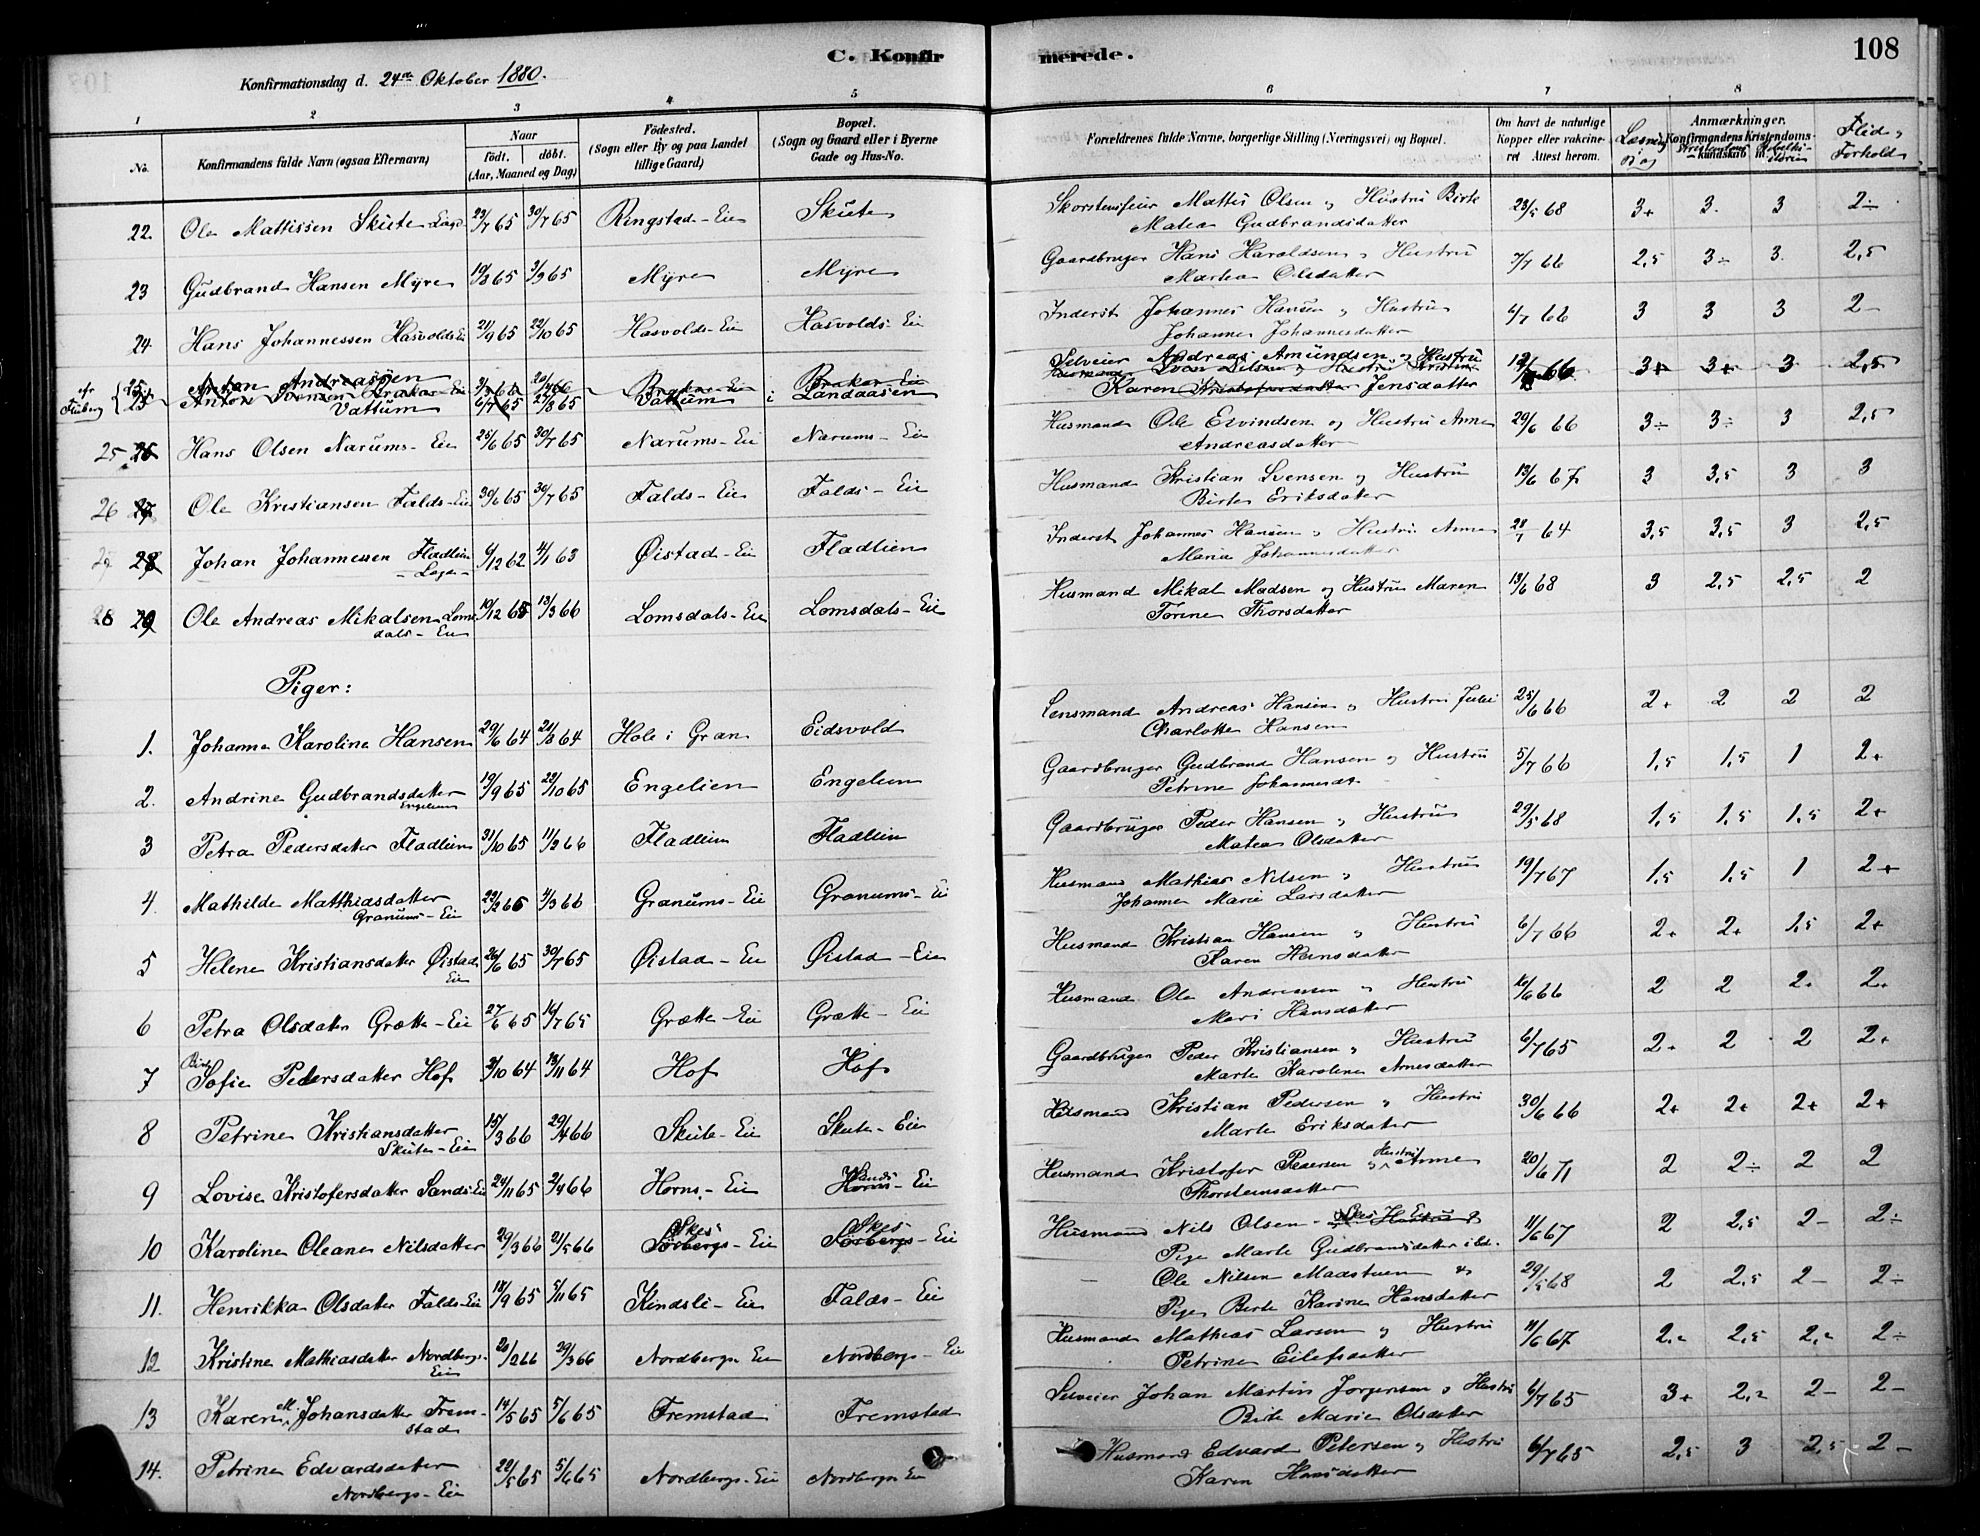 C. Konfirmerede.
108
Konfirmationsdag d. 24de Oktober 1880.
1 2 3 4 5 6 7 8
No. Konfirmandens fulde Navn (ogsaa Efternavn) Naar født. døbt. (Aar, Maaned og Dag) Fødested. (Sogn eller By og paa Landet tillige Gaard) Bopæl. (Sogn og Gaard eller i Byerne Gade og Hus-No. Forældrenes fulde Navne, borgerlige Stilling (Næringsvei) og Bopæl. Om havt de naturlige Kopper eller vakcineret. Attest herom. Anmærkninger. Konfirmandens Kristendomskundskab Flid og Forhold
22. Ole Mattissen Skute 23/7 65 30/7 65 Ringstad-Eie Skute Skorstensfeier Mattis Olsen og Hustru Birte 23/5 68 3+ 3. 3 2÷
Matea Gudbrandsdatter
23 Gudbrand Hansen Myre 19/8 65 3/9 65 Myre Myre Gaardbruger Hans Haraldsen og Hustru 7/7 66 2,5 3÷ 3. 2,5
Martea Olsdatter
24. Hans Johannessen Hasvolds-Ei 21/9 65 22/10 65 Hasvolds-Eie Hasvolds-Eie Inderst Johannes Hansen og Hustru 4/7 66 3 3 3 2-
Johanne Johannesdatter
Fluberg 25 Anton Andreassen Vattum 6/7 65 27/8 65 Vattum i Landaasen Selveier Andreas Amundsen og Hustru 66 3+ 3+ 3 2,5
Karen Jensdatter
25 26 Hans Olsen Narums-Eie 25/6 65 30/7 65 Narums-Eie Narums-Eie Husmand Ole Eivindsen og Hustru Anne 29/6 66 3÷ 3÷ 3 2,5
Andreasdatter
26 27 Ole Kristiansen Falds-Eie 30/6 65 30/7 65 Falds-Eie Falds-Eie Husmand Kristian Svensen og Hustru 13/6 67 3 3,5 3 3
Birte Eriksdatter
27 28 Johan Johannessen Fladlien 6/12 62 4/1 63 Øistad-Eie Fladlien Inderst Johannes Hansen og Hustru Anne 28/7 64 3,5 3,5 3 2,5
Marie Johannesdatter
28 29 Ole Andreas Mikalsen Lomsdals-Eie 10/12 65 13/3 66 Lomsdals-Eie Lomsdals-Eie Husmand Mikal Madsen og Hustru Maren 13/6 68 3 2,5 2,5 2
Torine Thorsdatter
Piger:
1. Johanne Karoline Hansen 29/6 64 21/8 64 Hole i Gran Eidsvold Lensmand Andreas Hansen og Hustru Julie 25/6 66 2+ 2 2 2
Charlotte Hansen
2. Andrine Gudbrandsdatter Engelien 19/9 65 22/10 65 Engelien Engelien Gaardbruger Gudbrand Hansen og Hustru 5/7 66 1,5 1,5 1 2+
Petrine Johannesdt.
3 Petra Pedersdatter Fladlien 31/10 65 11/2 66 Fladlien Fladlien Gaardbruger Peder Hansen og Hustru 29/5 68 1,5 1,5 1,5 2+
Matea Olsdatter
4. Mathilde Matthiasdatter Granums-Eie 4/3 66 Granums-Eie Granums-Ei Husmand Mathias Nilsen og Hustru 19/7 67 1,5 1,5 1 2+
Johanne Marie Larsdatter
5 Helene Kristiansdatter Øistad Eie 26/6 65 30/7 65 Øistad-Eie Øistad-Eie Husmand Kristian Hansen og Hustru 6/7 66 2+ 2+ 1,5 2+
Karen Hansdatter
6 Petra Olsdatter Grætte-Eie 27/6 65 16/7 65 Grætte-Eie Grætte-Eie Husmand Ole Andreassen og Hustru 16/6 66 2 2 2. 2+
Mari Hansdatter
7 Sofie Pedersdatter Hof 3/10 64 13/11 64 Hof Hof Gaardbruger Peder Kristiansen og Hustru 6/7 65 2+ 2 2 2+
Marte Karoline Arnesdatter
8 Petrine Kristiansdatter Skute-Eie 15/3 66 29/4 66 Skute-Eie Skute-Eie Husmand Kristian Pedersen og Hustru 30/6 66 2+ 2+ 2+ 2+
Marte Eriksdatter
9 Lovise Kristofersdatter Sands-Eie 24/11 65 2/4 66 Horns-Eie Sands-Eie Husmand Kristofer Pedersen og Hustru Anne 20/6 71 2 2÷ 2 2
Thorstensdatter
10 Karoline Oleane Nilsdatter 29/3 66 21/5 66 Skes-Eie Skes-Eie Husmand Nils Olsen Skes Eie og 11/6 67 2 2,5 2- 2÷
Pige Marte Gudbrandsdatter ibd.
11. Henrikka Olsdatter Falds-Eie 18/9 65 5/11 65 Kindsli-Eie Falds-Eie - Ole Nilsen Madstuen og 29/5 68 2 2,5 2- 2÷
Pige Birte Karine Hansdatter
12 Kristine Mathiasdatter Nordbergs-Eie 20/2 66 29/3 66 Nordbergs-Eie Nordbergs-Eie Husmand Mathias Larsen og Hustru 11/6 67 2,2 2,5 2,2 2÷
Petrine Eilefsdatter
13 Karen M. Johansdatter Fremstad 14/5 65 5/6 65 Fremstad Fremstad Selveier Johan Martin Jørgensen og Hustru 6/7 65 3+ 2,2 2- 2-
Birte Marie Olsdatter
14. Petrine Edvardsdatter Nordbergs-Eie 22/5 65 5/6 65 Nordbergs-Eie Nordbergs-Eie Husmand Edvard Petersen og Hustru 6/7 65 2,5 3 2,5 2-
Karen Hansdatter